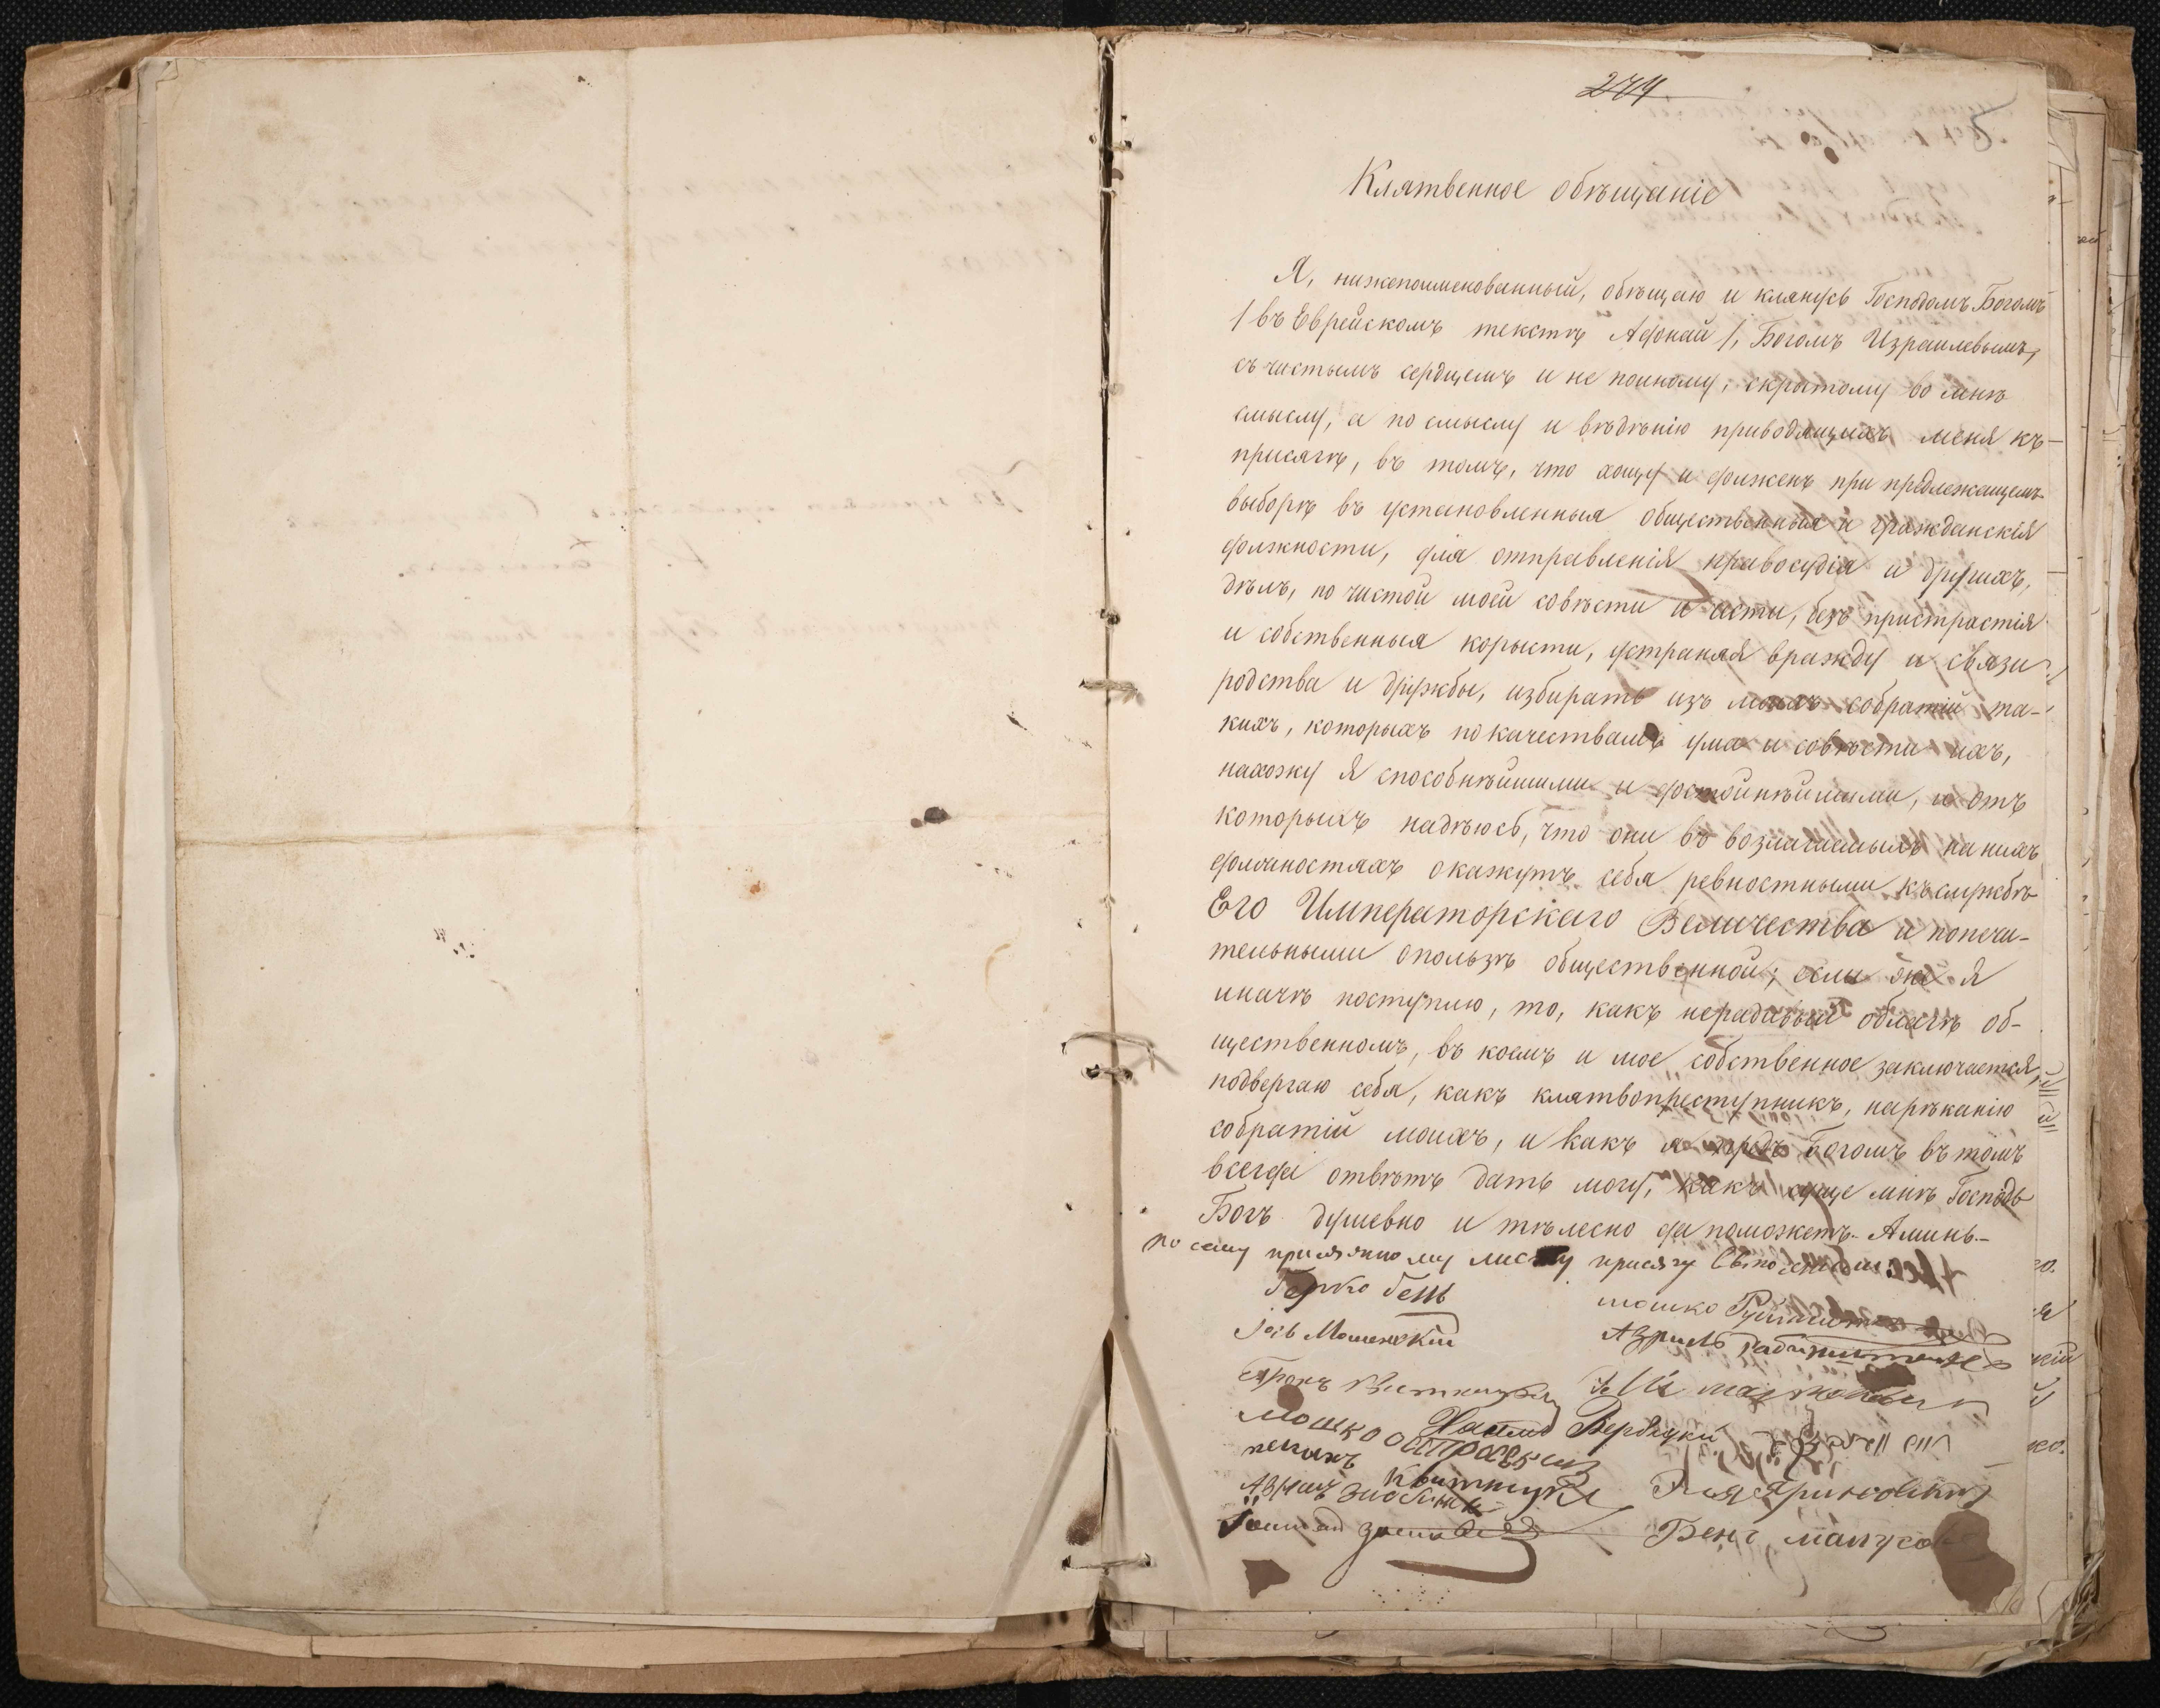 274
Клятвенное обѣщаніе
Я, нижепоименованный, обѣщаю и клянусь Господомъ Богомъ
/ въ Еврейскомъ текстѣ Адонай /, Богомъ Израилевымъ,
съ чистымъ сердцемъ и не по иному, скрытому во мнѣ
смыслу, а по смыслу и вѣдѣнію приводящихъ меня къ
присягѣ, въ томъ, что хощу и долженъ при предлежащемъ
выборѣ въ установленныя общественныя и гражданскія
должности, для отправленія правосудія и другихъ
дѣлъ, по чистой моей совѣсти и чести, безъ пристрастія
и собственныя корысти, устраняя вражду и связи
родства и дружбы, избирать изъ моихъ собратій та-
кихъ, которыхъ по качествамъ ума и совѣсти ихъ,
нахожу я способнѣйшими и достойнѣйшими, и отъ
которыхъ надѣюсь, что они въ возлагаемыхъ на нихъ
должностяхъ окажутъ себя ревностными къ службѣ
Его Императорскаго Величества и попечи-
тельными о пользѣ общественной; если же я
иначѣ поступлю, то, какъ нерадивый о благѣ об-
щественномъ, въ коемъ и мое собственное заключается,
подвергаю себя, какъ клятвопреступникъ, нареканію
собратій моихъ, и какъ я предъ Богомъ въ томъ
всегда отвѣтъ дать могу, какъ суще мнѣ Господь
Богъ душевно и тѣлесно да поможетъ. Аминь.
по сему присяжному листу присягу
Берко Бень
мошко
Іось Мошенскій
Азриль
Хаимъ Бердицкій
мошко
Бень